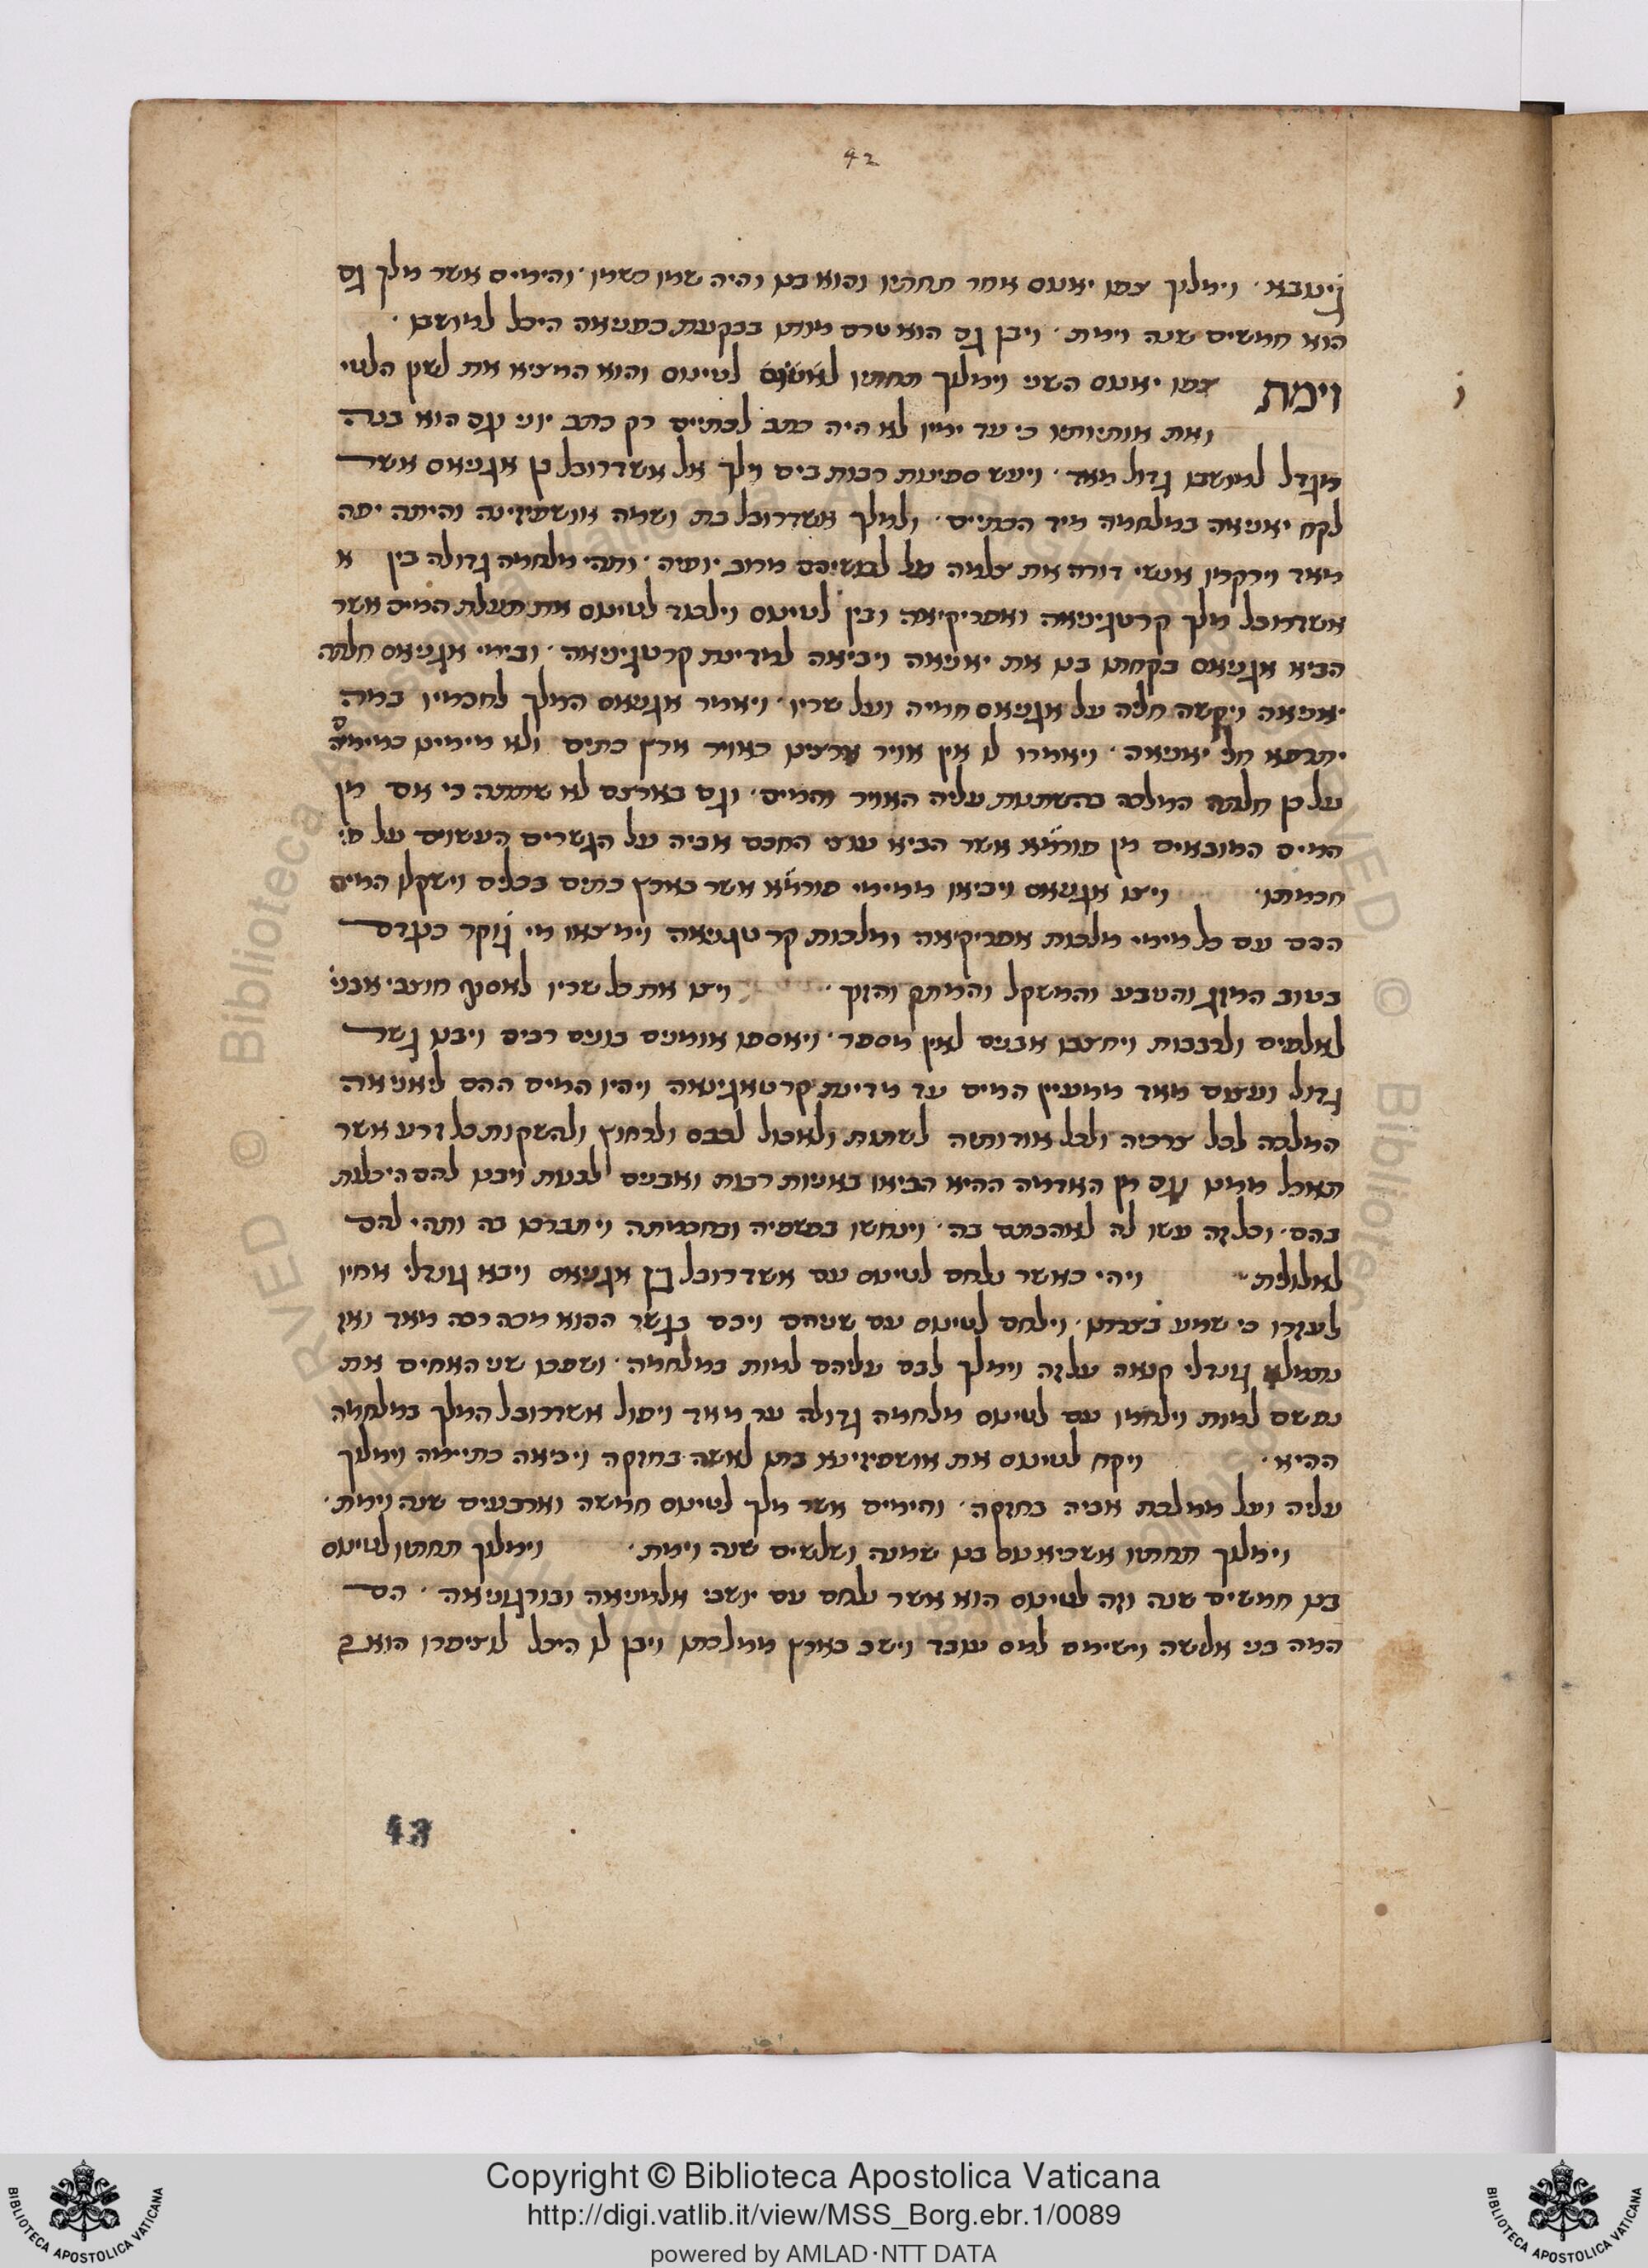 42
גינובא · וימלוך צפו יאנוס אחר תחתיו והוא בנו והיה שמו כשמו · והימים אשר מלך גם
הוא חמשים שנה וימת · ויבן גם הוא טרם מותו בבקעת כפניאה היכל למושבו ·
וימת צפו יאנוס השני וימלוך תחתיו לטינוס והוא המציא את לשון הלטי
ואת אותיותיו כי עד ימיו לא היה כתב לכתיים רק כתב יוני וגם הוא בנה
מגדל למושבו גדול מאד · ויעש ספינות רבות בים וילך אל אשדרובל בן אגניאס אשר
לקח יאניאה במלחמה מיד הכתיים · ולמלך אשדרובל בת ושמה אושפיזינה והיתה יפה
מאד וירקמו אנשי דורה את צלמה על לבושיהם מרוב יופיה · ותהי מלחמה גדולה בין א
אשדרובל מלך קרטגיניאה ואפריקיאה ובין לטינוס וילכוד לטינוס את תעלת המים אשר
הביא אגניאס בקחתו בנו את יאניאה ויביאה למדינת קרטגיניאה · ובימי אגניאס חלתה
יאניאה ויקשה חליה על אגניאס חמיה ועל שריו · ויאמר אגניאס המלך לחכמיו במה
ירפא חלי יאניאה · ויאמרו לו אין אויר ארצינו כאויר ארץ כתים ולא מימינו כמימיה
על כן חלתה המלכה בהשתנות עליה האויר והמים · וגם בארצם לא שתתה כי אם מן
המים המובאים מן פורמא אשר הביא עוצי החכם אביה על הגשרים העשוים על פי
חכמתו · ויצו אגניאס ויביאו ממימי פורמא אשר בארץ כתים בכלים וישקלו המים
ההם עם כל מימי מלכות אפריקיאה ומלכות קרטגניאה וימצאו מי גוקר כערכם
בטוב המזג והטבע והמשקל והמתק והזך · ויצו את כל שריו לאסוף חוצבי אבני
לאלפים ולרבבות ויחצבו אבנים לאין מספר · ויאספו אומנים בונים רבים ויבנו גשר
גדול ועצום מאד ממעיין המים עד מדינת קרטאגניאה ויהיו המים ההם ליאניאה
המלכה לכל צרכיה ולכל אודותיה לשתות ולאכול לכבס ולרחוץ ולהשקות כל זרע אשר
תאכל ממנו וגם מן האדמה ההיא הביאו באניות רבות ואבנים לבנות ויבנו להם היכלות
בהם · וכל זה עשו לה לאהבתם בה · וינחשו בכשפיה ובחכמיתה ויתברכו בה ותהי להם
לאלהית · ויהי כאשר נלחם לטינוס עם אשדרובל בן אגניאס ויבא גונדלי אחיו
לעזרו כי שמע בצרתו · וילחם לטינוס עם שניהם ויכם בגשר ההוא מכה רבה מאד ואז
נתמלא גונדלי קנאה על זה וימלך לבם עליהם למות במלחמה · ושפכו שני האחים את
נפשם למות וילחמו עם לטינוס מלחמה גדולה עד מאד ויפול אשדרובל המלך במלחמה
ההיא · ויקח לטינוס את אושפיזינא בתו לאשה בחזקה ויביאה כתיימה וימלוך
עליה ועל ממלכת אביה בחזקה · והימים אשר מלך לטינוס חמשה וארבעים שנה וימת ·
וימלוך תחתיו אשכיאנוס בנו שמנה ושלשים שנה וימת · וימלוך תחתיו לטינוס
בנו חמשים שנה וזה לטינוס הוא אשר נלחם עם יושבי אלמניאה ובורגוניאה · הם
המה בני אלישה וישימם למס עובד וישב בארץ ממלכתו ויבן לו היכל לוציפרו הוא
43
Copyright © Biblioteca Apostolica Vaticana
http://digi.vatlib.it/view/MSS_Borg.ebr.1/0089
powered by AMLAD·NTT DATA